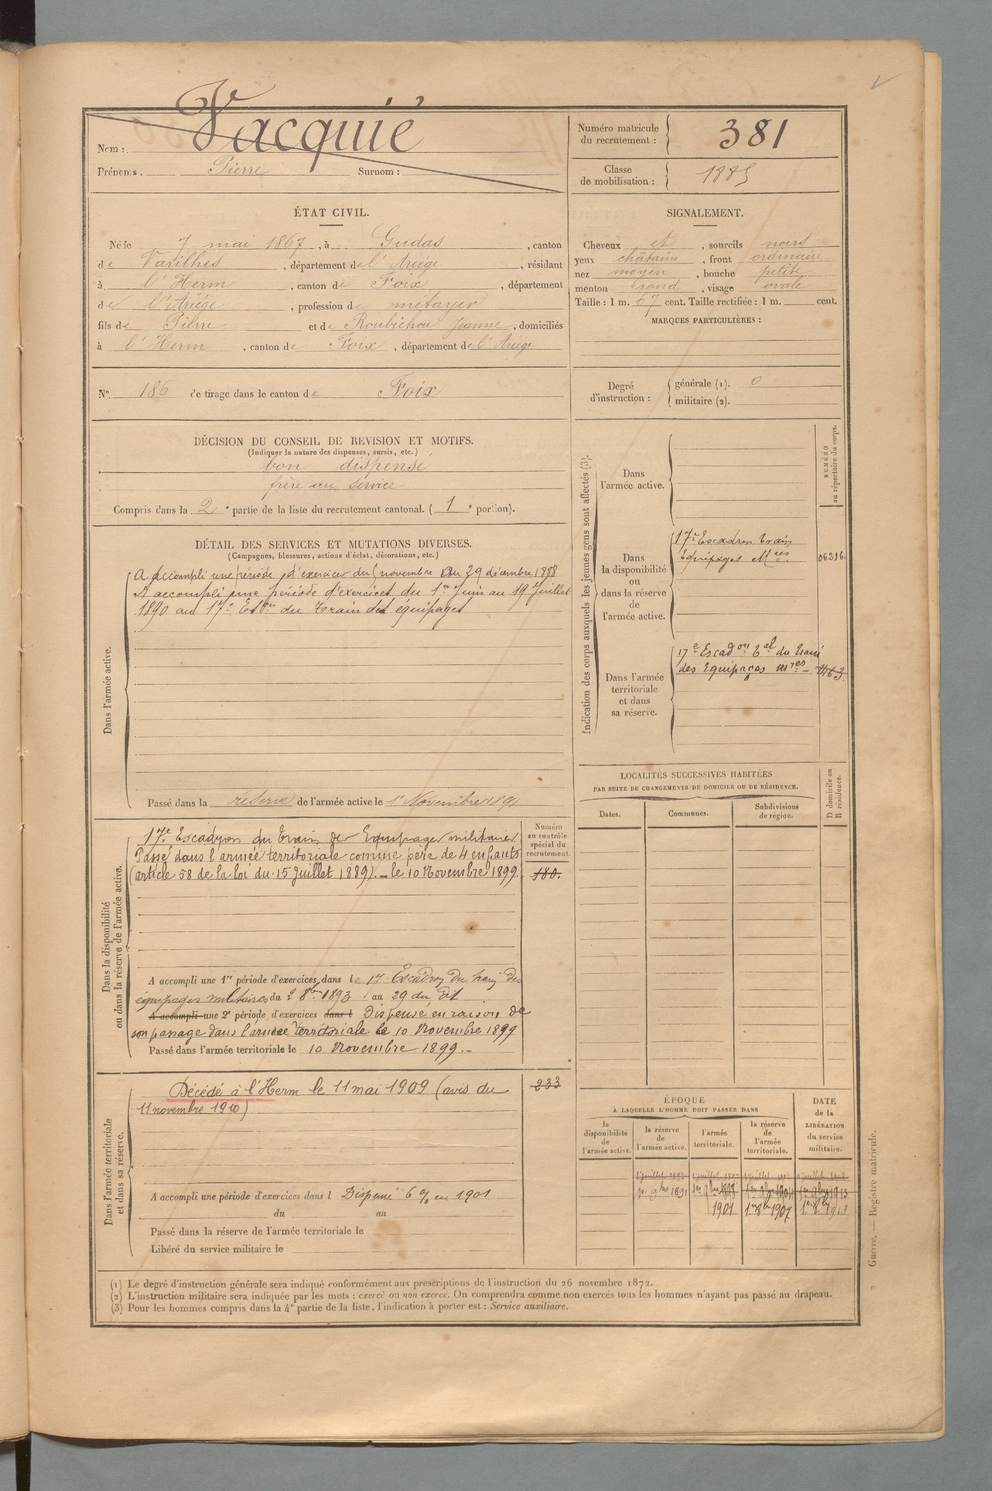 Nom : Vacquié
Prénoms. Pierre Surnom :
Numéro matricule du recrutement : 381
Classe de mobilisation : 1885
ÉTAT CIVIL.
Né le 7 mai 1867, à Gudas, canton
de Varilhes, département de l'Ariège, résidant
à l'Herm, canton de Foix, département
de l'Ariège, profession de métayer
fils de Pierre et de Roubichou Jeanne, domiciliés
à l'Herm, canton de Foix, département de l'Ariège
SIGNALEMENT.
Cheveux et, sourcils noirs
yeux châtains, front ordinaire
nez moyen, bouche petite
menton rond, visage ovale
Taille : 1 m. 67 cent. Taille rectifiée : 1 m. cent.
MARQUES PARTICULIÈRES :
N° 186 de tirage dans le canton de Foix
Degré d'instruction : générale (1). 0
militaire (2).
DÉCISION DU CONSEIL DE REVISION ET MOTIFS.
(Indiquer la nature des dispenses, sursis, etc.)
bon dispensé
frère au service
Compris dans la 2e partie de la liste du recrutement cantonal. (1e portion).
DÉTAIL DES SERVICES ET MUTATIONS DIVERSES.
(Campagnes, blessures, actions d'éclat, décorations, etc.)
Dans l'armée active.
A accompli une période d'exercices du 5 novembre au 29 décembre 1888
A accompli une période d'exercices du 1er Juin au 19 Juillet
1890 au 17e Eson du Train des équipages
Passé dans la réserve de l'armée active le 1er Novembre 1891
Indication des corps auxquels les jeunes gens sont affectés (3).
NUMÉRO au répertoire du corps.
Dans l'armée active.
Dans la disponibilité ou dans la réserve de l'armée active.
17e Escadron train
équipages Mres 06316.
Dans l'armée territoriale et dans sa réserve.
17e Escadon Eal du train
des Equipages mres
LOCALITÉS SUCCESSIVES HABITÉES
PAR SUITE DE CHANGEMENTS DE DOMICILE OU DE RÉSIDENCE.
D domicile ou R résidence.
Dates. Communes. Subdivisions de région.
Dans la disponibilité ou dans la réserve de l'armée active.
Numéro au contrôle spécial du recrutement.
17e Escadron du train des Equipages militaires
Passé dans l'armée territoriale comme père de 4 enfants
(article 58 de la loi du 15 Juillet 1889). - le 10 Novembre 1899. 180.
A accompli une 1re période d'exercices dans le 17e Escadron du train des
équipages militaires du 2 8bre 1893 au 29 du dit
A accompli une 2e période d'exercices dans l Dispensé en raison de
son passage dans l'armée territoriale le 10 Novembre 1899
Passé dans l'armée territoriale le 10 Novembre 1899.
Dans l'armée territoriale et dans sa réserve.
Décédé à l'Herm le 11 mai 1909 (avis du 233
11 novembre 1910)
A accompli une période d'exercices dans l Dispensé 6 % en 1901
du au
Passé dans la réserve de l'armée territoriale le
Libéré du service militaire le
ÉPOQUE
À LAQUELLE L'HOMME DOIT PASSER DANS
la disponibilité de l'armée active.
la réserve de l'armée active.
l'armée territoriale.
la réserve de l'armée territoriale.
DATE de la LIBÉRATION du service militaire.
1901
Guerre. — Registre matricule.
(1) Le degré d'instruction générale sera indiqué conformément aux prescriptions de l'instruction du 26 novembre 1872.
(2) L'instruction militaire sera indiquée par les mots : exercé ou non exercé. On comprendra comme non exercés tous les hommes n'ayant pas passé au drapeau.
(3) Pour les hommes compris dans la 4e partie de la liste, l'indication à porter est : Service auxiliaire.